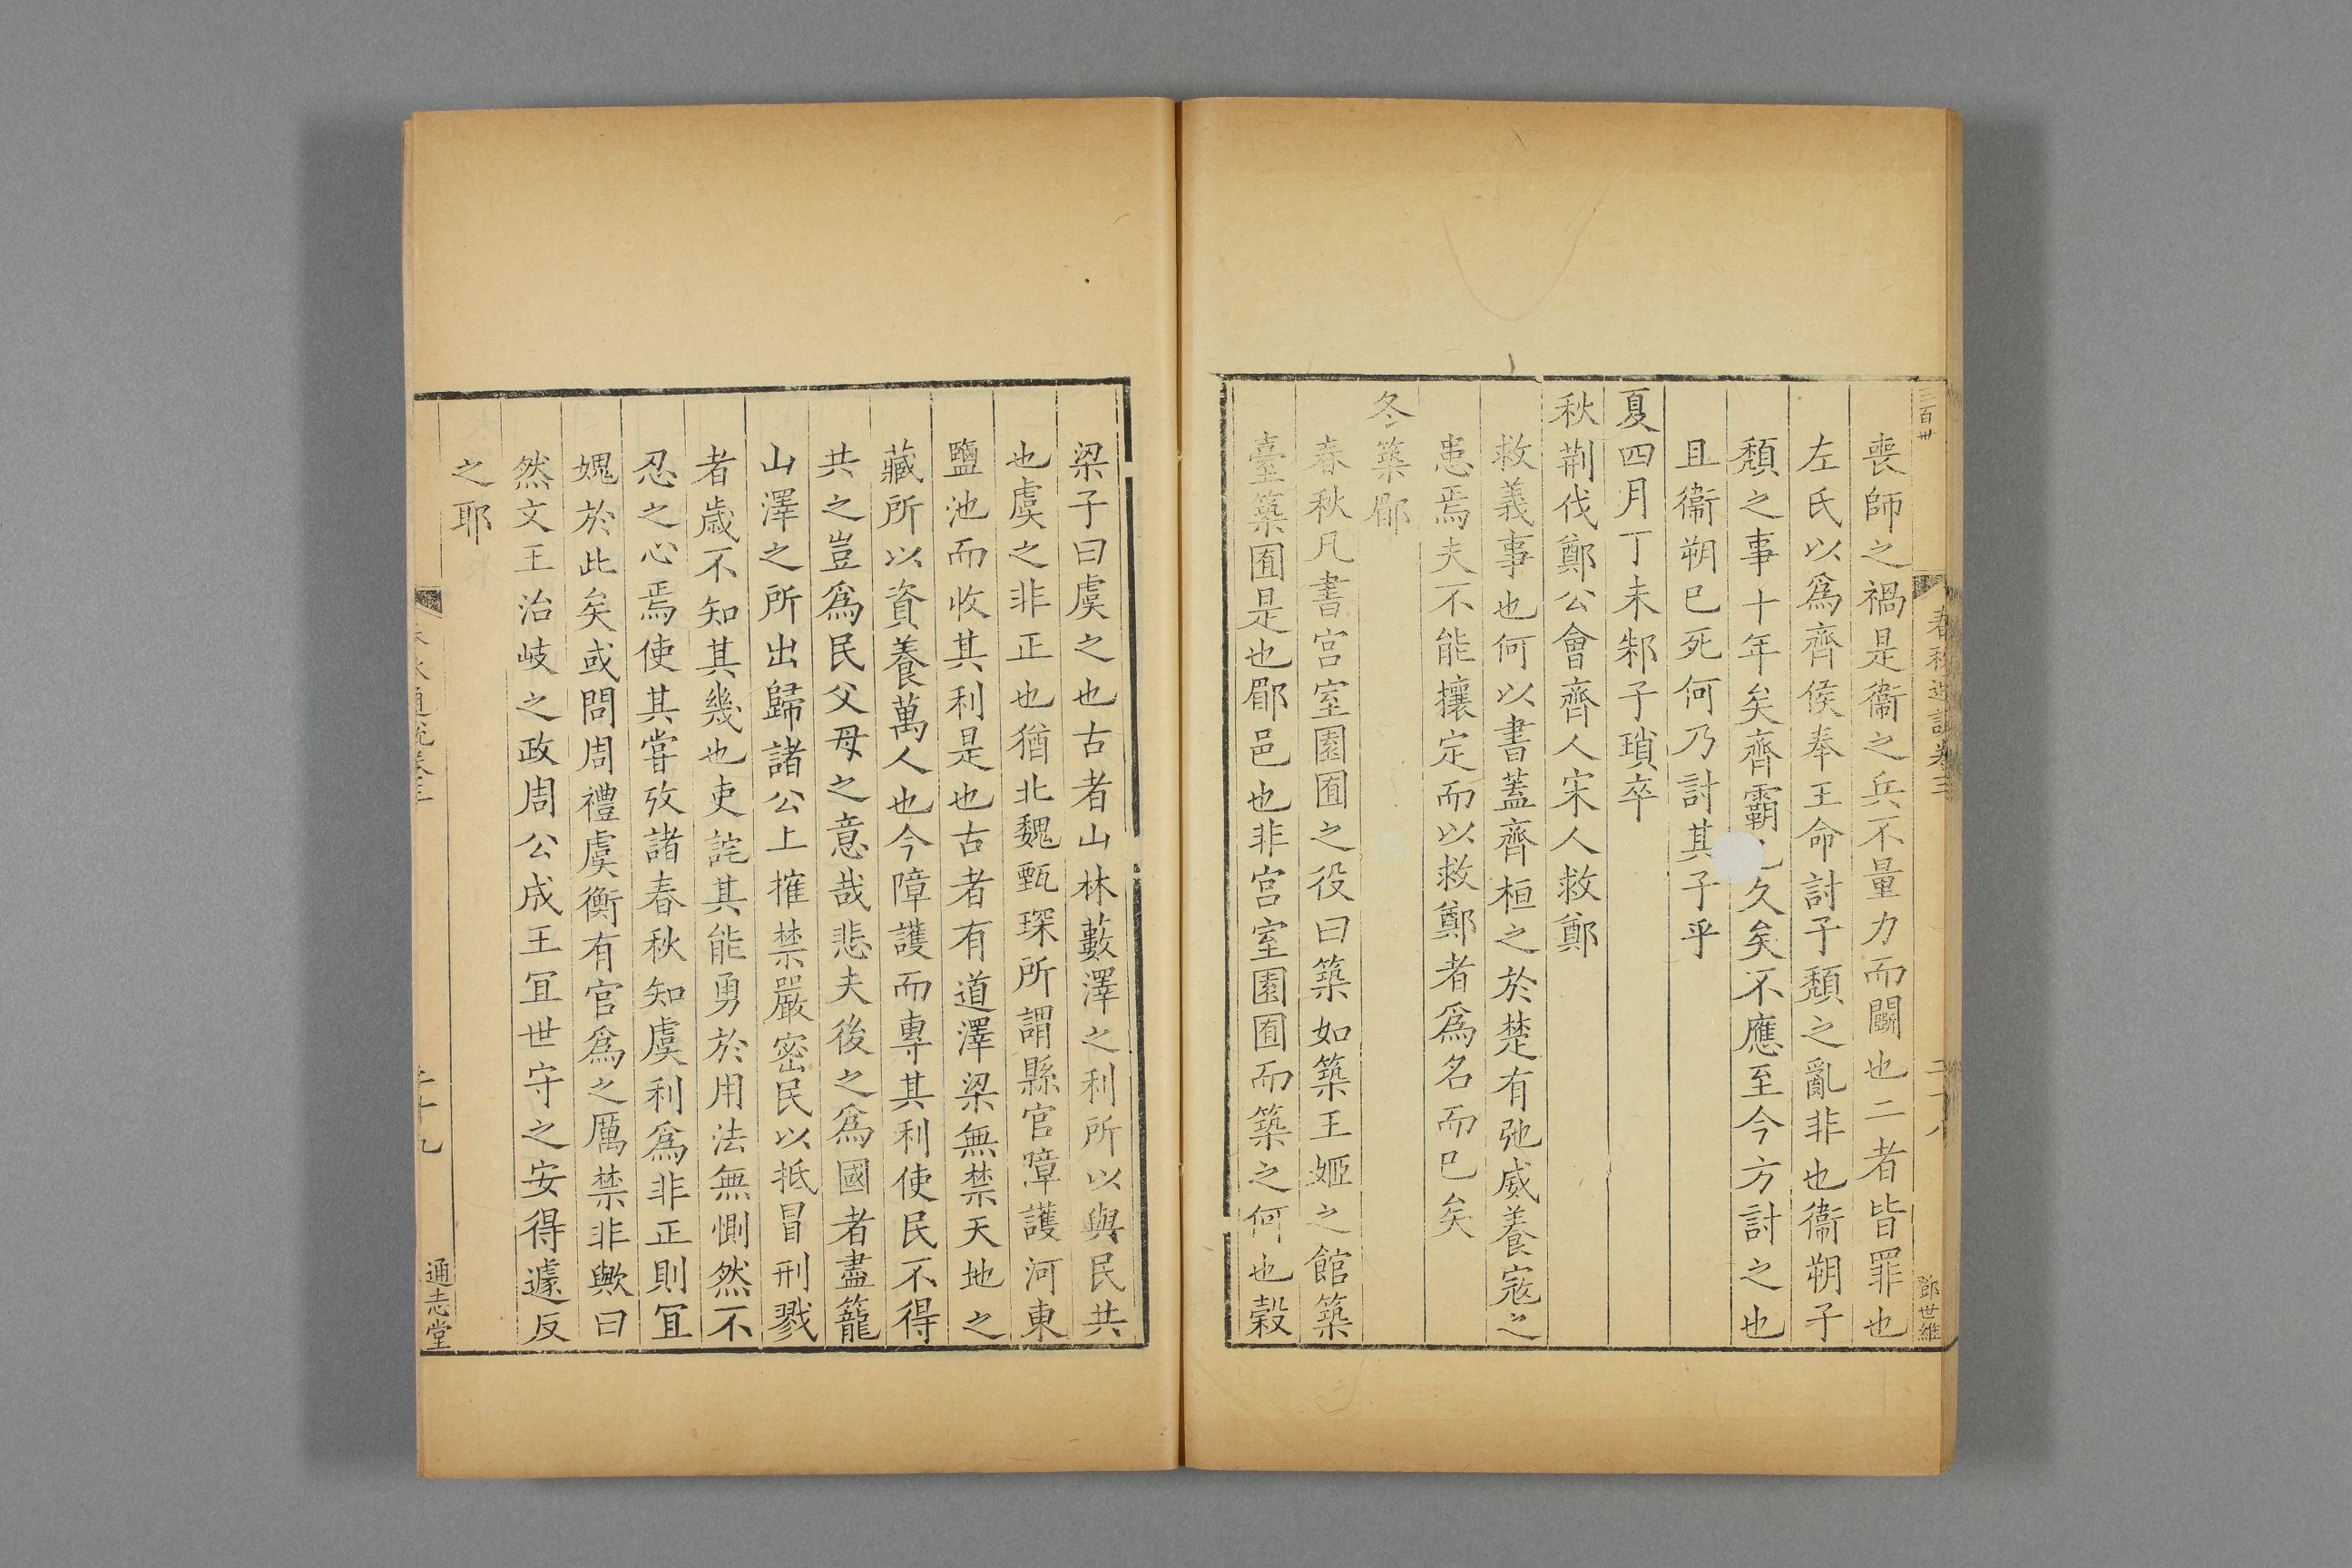 三百卅
春秋通說卷三
二十八
鄧世維
喪師之禍是衞之兵不量力而鬭也二者皆罪也
左氏以爲齊侯奉王命討子頹之亂非也衞朔子
頹之事十年矣齊霸久矣不應至今方討之也
且衞朔已死何乃討其子乎
夏四月丁未邾子瑣卒
秋荆伐鄭公會齊人宋人救鄭
救義事也何以書蓋齊桓之於楚有弛威養寇之
患焉夫不能攘定而以救鄭者爲名而巳矣
冬築郿
春秋凡書宫室園囿之役曰築如築王姬之館築
臺築囿是也郿邑也非宫室園囿而築之何也穀
梁子曰虞之也古者山林藪澤之利所以與民共
也虞之非正也猶北魏甄琛所謂縣官障護河東
鹽池而收其利是也古者有道澤梁無禁天地之
藏所以資養萬人也今障護而專其利使民不得
共之豈爲民父母之意哉悲夫後之爲國者盡籠
山澤之所出歸諸公上搉禁嚴密民以抵冒刑戮
者歳不知其幾也吏詫其能勇於用法無惻然不
忍之心焉使其嘗攷諸春秋知虞利爲非正則冝
媿於此矣或問周禮虞衡有官爲之厲禁非歟曰
然文王治岐之政周公成王冝世守之安得遽反
之耶
通說卷三
二十九
通志堂